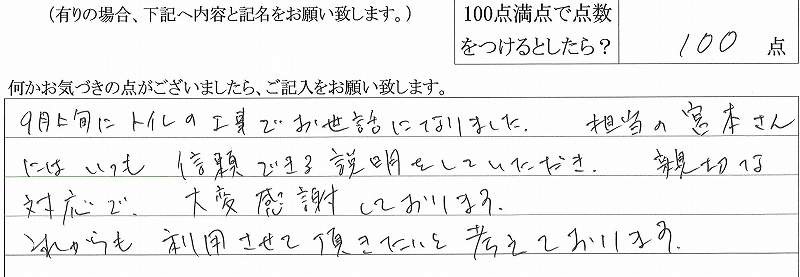 （有りの場合、下記へ内容と記名をお願い致します。）
100点満点で点数
をつけるとしたら？
100 点
何かお気づきの点がございましたら、ご記入をお願い致します。
9月上旬にトイレの工事でお世話になりました. 担当の宮本さん
にはいつも信頼できる説明をしていただき. 親切な
対応で. 大変感謝しております.
これからも利用させて頂きたいと考えております.